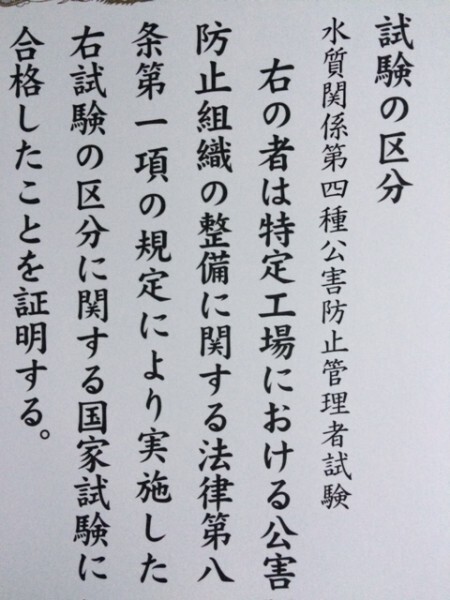 試験の区分
水質関係第四種公害防止管理者試験
右の者は特定工場における公害
防止組織の整備に関する法律第八
条第一項の規定により実施した
右試験の区分に関する国家試験に
合格したことを証明する。